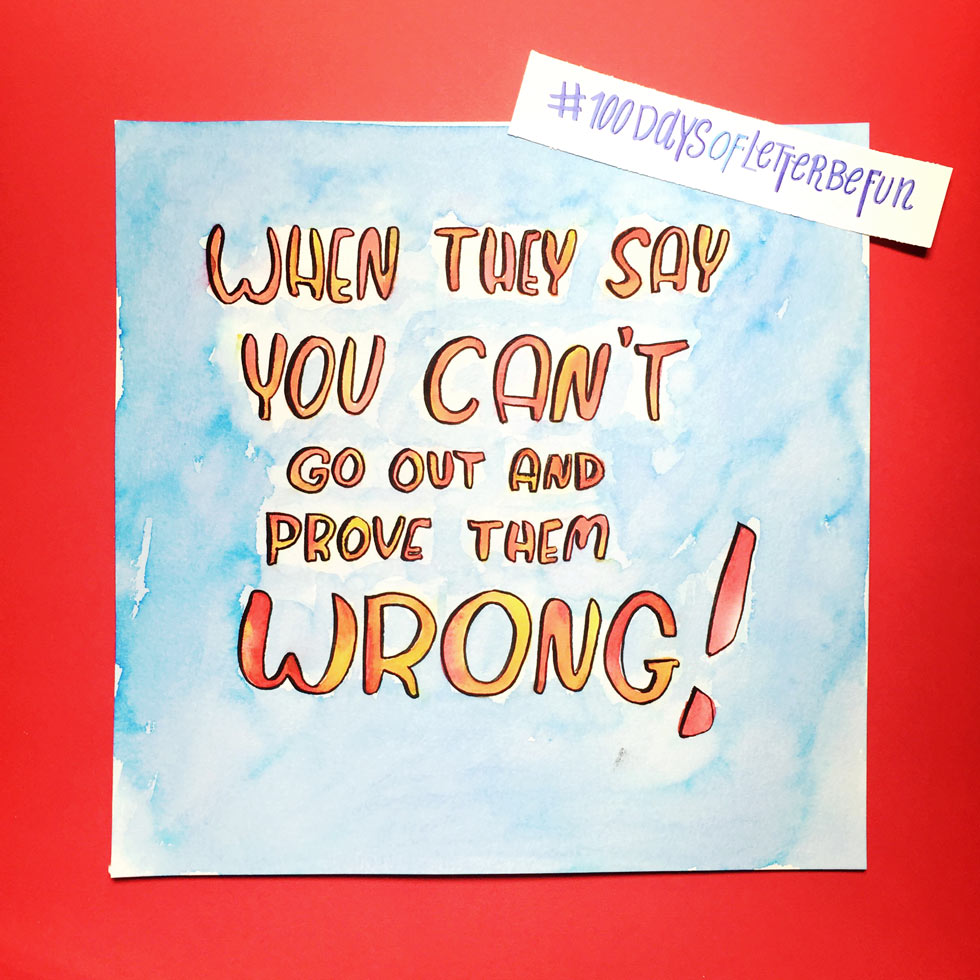 #100DaysOfLetterBeFun
WHEN THEY SAY
YOU CAN'T
GO OUT AND
PROVE THEM
WRONG!